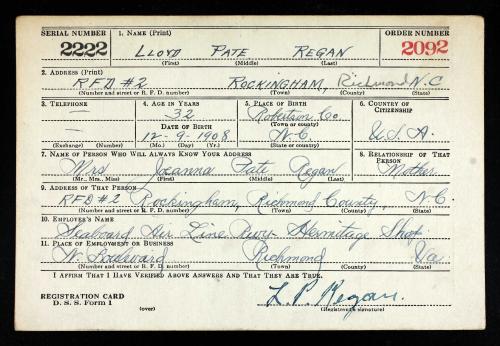 SERIAL NUMBER 1. NAME (Print) ORDER NUMBER
2222 LLOYD PATE REGAN 2092
(First) (Middle) (Last)
2. ADDRESS (Print)
R.F.D. #2 ROCKINGHAM, Richmond N.C
(Number and street or R. F. D. number) (Town) (County) (State)
3. TELEPHONE 4. AGE IN YEARS 5. PLACE OF BIRTH 6. COUNTRY OF CITIZENSHIP
— 32 Robertson Co.
DATE OF BIRTH (Town or county)
— 12-9-1908 N.C. U.S.A.
(Exchange) (Number) (Mo.) (Day) (Yr.) (State or country)
7. NAME OF PERSON WHO WILL ALWAYS KNOW YOUR ADDRESS 8. RELATIONSHIP OF THAT PERSON
Mrs Joanna Pate Regan Mother
(Mr., Mrs., Miss) (First) (Middle) (Last)
9. ADDRESS OF THAT PERSON
RFD #2 Rockingham, Richmond County, N.C
(Number and street or R. F. D. number) (Town) (County) (State)
10. EMPLOYER'S NAME
Seaboard Air Line Rwy Hermitage Shop
11. PLACE OF EMPLOYMENT OR BUSINESS
W. Boulevard Richmond Va
(Number and street or R. F. D. number) (Town) (County) (State)
I AFFIRM THAT I HAVE VERIFIED ABOVE ANSWERS AND THAT THEY ARE TRUE.
REGISTRATION CARD L. P. Regan.
D. S. S. Form 1 (over) (Registrant's signature)